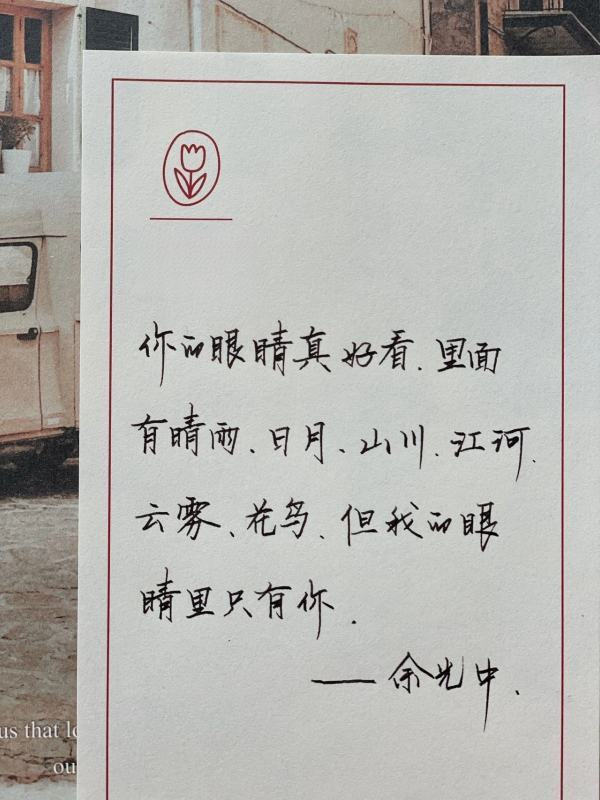 你的眼睛真好看.里面
有晴雨、日月、山川.江河.
云雾、花鸟.但我的眼
睛里只有你.
——余光中.
us that lo
ou